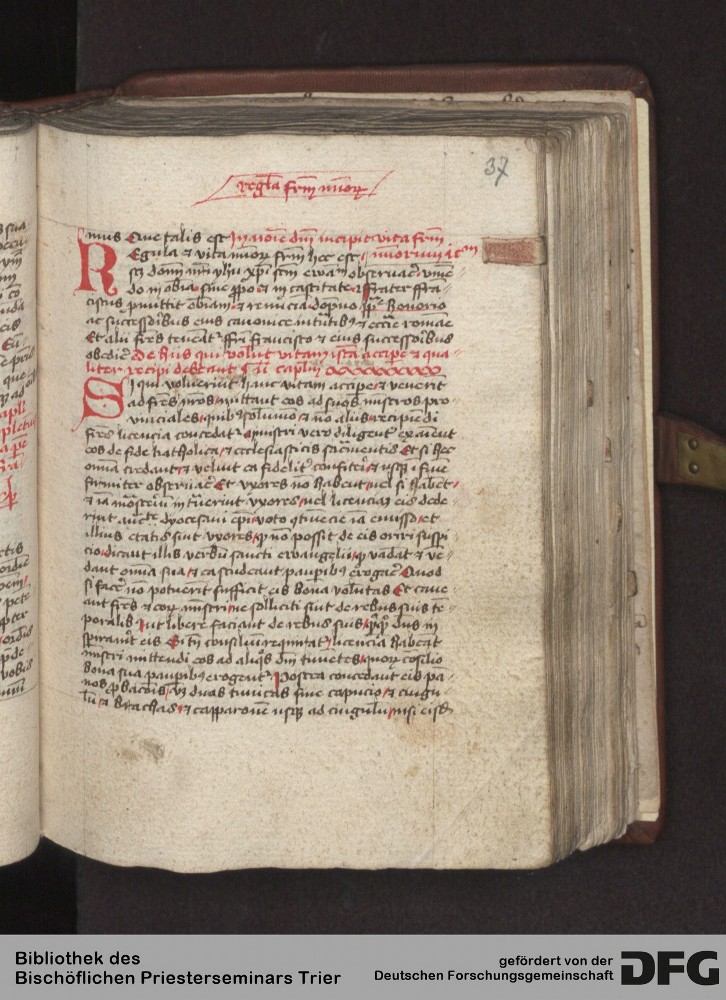 37
Regula frm minorum
mus Que talis est In noie dni incipit vita frm
Regula et vita minorum frm hec est minorum ic
scz domini nostri yhu xpi scm ewangelium observare vivendo
do in obia sine proprio et in castitate Frater fran
ciscus promittit obediam et reverencia dopno pp Honorio
ac successoribus eius canonice intrantibus et ecclie romane
Et alii fres teneantur fri francisco et eius successoribus
obedire De hiis qui volunt vitam istam accipere et qua
liter recipi debeant ii caplm
Si qui voluerint hanc vitam accipere et venerint
ad fres nros mittant eos ad suos ministros pro
vinciales quibus solummodo et non aliis recipiendi
fres licencia concedatur Ministri vero diligenter examinent
eos de fide katholica et ecclesiasticis sacramentis Et si hec
omnia credant et velint ea fideliter confiteri et usque in finem
firmiter observare Et uxores non habent vel si habent
et iam monasterium intraverint uxores vel licenciam eis dede
rint aucte dyocesani epi voto continencie iam emisso et
illius etatis sint uxores quod non possit de eis oriri suspi
cio dicant illis verbum sancti ewangelii quod vadant et ven
dant omnia sua et ea studeant pauperibus erogare Quod
si facere non potuerint sufficit eis bona voluntas Et cave
ant fres et eorum ministri ne solliciti sint de rebus suis te
poralibus ut libere faciant de rebus suis quicquid dns in
spiraverit eis Si tn consilium requiratur licencia habeant
ministri mittendi eos ad aliquos dm timentes quorum consilio
bona sua pauperibus erogentur Postea concedant eis pa
nos probacionis videlicet duas tunicas sine capucio et cingu
lum et brachas et capparonem usque ad cingulum nisi eisdem
Bibliothek des
Bischöflichen Priesterseminars Trier
gefördert von der
Deutschen Forschungsgemeinschaft
DFG